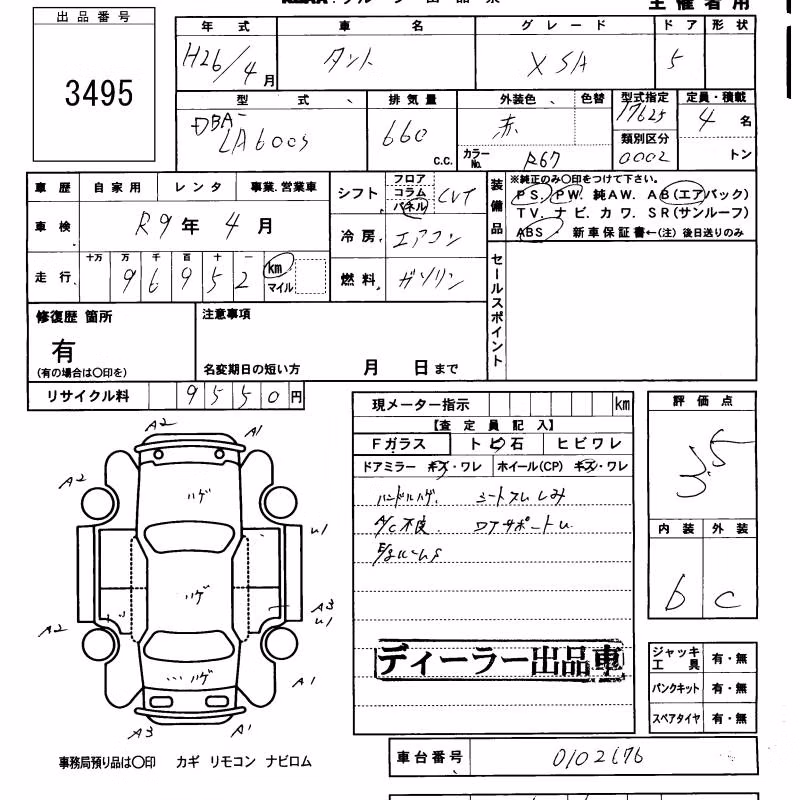 出品番号
3495
主催者用
年式 車名 グレード ドア 形状
H26/4月 タント X SA 5
型式 排気量 外装色 色替 型式指定 定員・積載
DBA-
LA600S 660 c.c. 赤 17625 4名
カラーNo. R67 類別区分 0002 トン
車歴 自家用 レンタ 事業.営業車
車検 R9年4月
走行 十万 万 千 百 十 一
96952 km マイル
シフト フロア コラム パネル CVT
冷房 エアコン
燃料 ガソリン
装備品 ※純正のみ○印をつけて下さい。
PS. PW. 純AW. AB(エアバック)
TV. ナビ. カワ. SR(サンルーフ)
ABS・新車保証書←(注)後日送りのみ
セールスポイント
修復歴 箇所
有
(有の場合は○印を)
注意事項
名変期日の短い方 月 日まで
リサイクル料 9550円
現メーター指示 km
【査定員記入】
Fガラス トビ石 ヒビワレ
ドアミラー キズ・ワレ ホイール(CP) キズ・ワレ
ハンドルハゲ. シートスレシミ
A/C不良 DTサポートU
評価点
3.5
内装 外装
b c
A2 A1
A2 ハゲ
U1
ハゲ
A2 A3
U1
ハゲ A1
A3 A1
ディーラー出品車
ジャッキ工具 有・無
パンクキット 有・無
スペアタイヤ 有・無
事務局預り品は○印 カギ リモコン ナビロム
車台番号 0102676